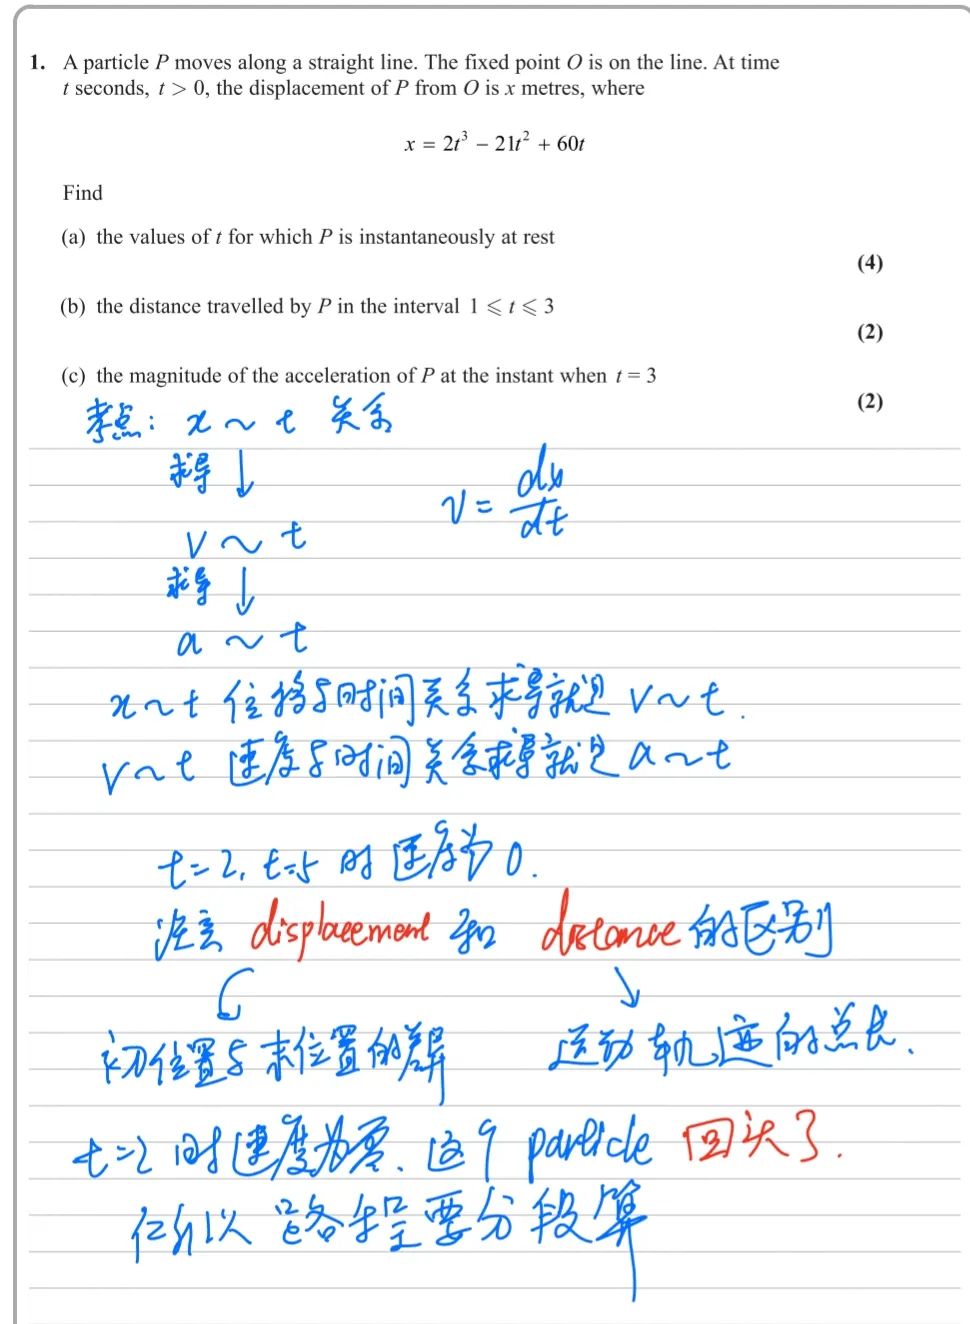 1. A particle P moves along a straight line. The fixed point O is on the line. At time
t seconds, t > 0, the displacement of P from O is x metres, where
x = 2t³ − 21t² + 60t
Find
(a) the values of t for which P is instantaneously at rest
(4)
(b) the distance travelled by P in the interval 1 ⩽ t ⩽ 3
(2)
(c) the magnitude of the acceleration of P at the instant when t = 3
(2)
考点: x ~ t 关系
求导 ↓
v = dx/dt
v ~ t
求导 ↓
a ~ t
x ~ t 位移与时间关系求导就是 v ~ t.
v ~ t 速度与时间关系求导就是 a ~ t
t=2, t=5 时速度为 0.
注意 displacement 和 distance 的区别
初位置与末位置的差 运动轨迹的总长.
t=2 时速度为零、这个 particle 回头了.
所以路程要分段算